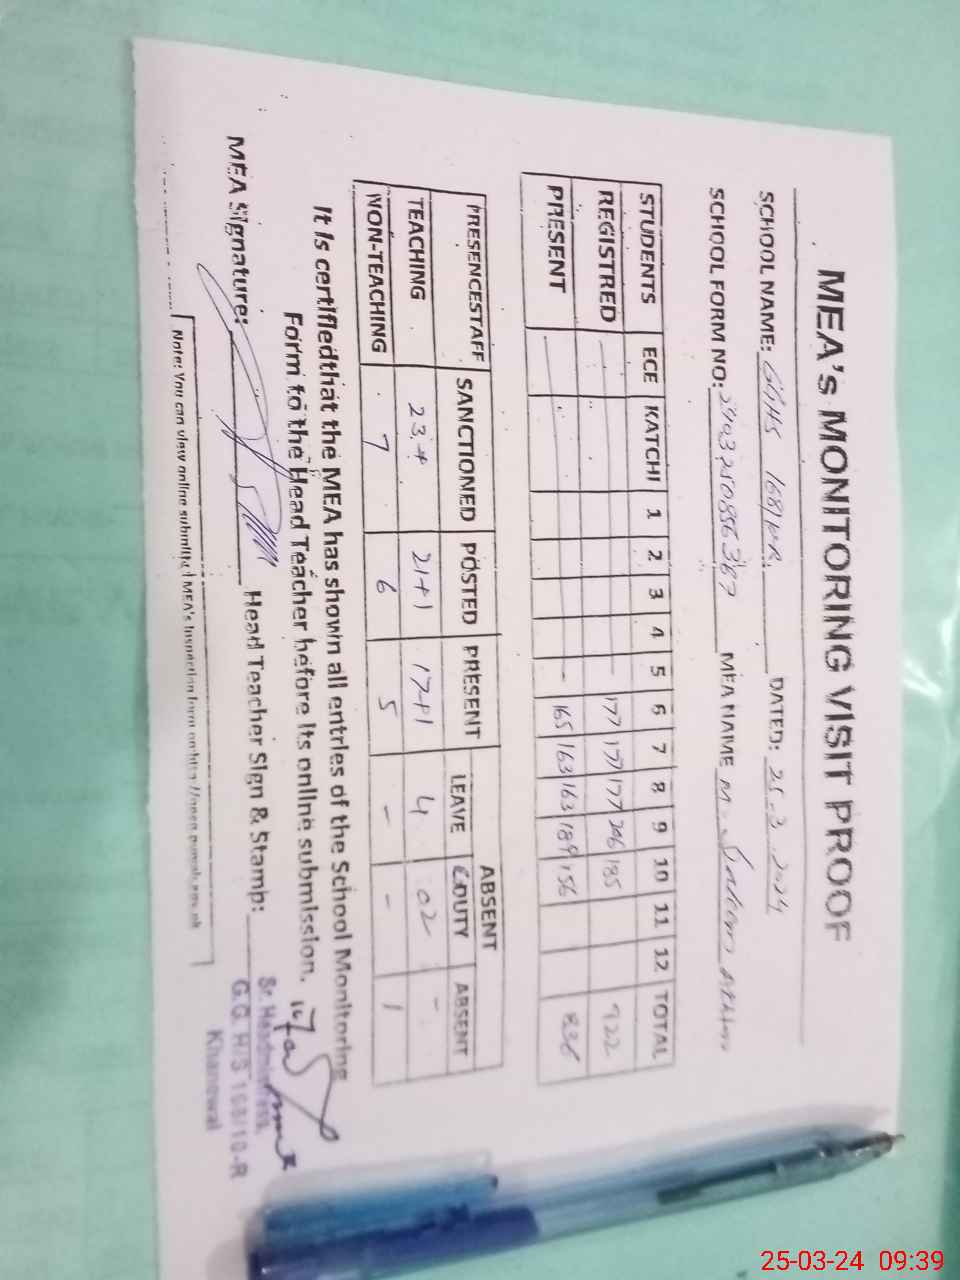 MEA's MONITORING VISIT PROOF
SCHOOL NAME: GGHS 168/10R. DATED: 25-3-2024
SCHOOL FORM NO: MEA NAME M.
STUDENTS ECE KATCHI 1 2 3 4 5 6 7 8 9 10 11 12 TOTAL
REGISTRED - - 177 177 177 206 185 922
PRESENT - 165 163 163 189 156 836
ABSENT
PRESENCESTAFF SANCTIONED POSTED PRESENT LEAVE O.DUTY ABSENT
TEACHING 23+ 21+1 17+1 4 02 -
NON-TEACHING 7 6 5 - - 1
It Is certifiedthat the MEA has shown all entries of the School Monitoring
Form to the Head Teacher before Its online submission.
MEA Signature: Head Teacher Sign & Stamp:
Sr. Headmistress
G.G. H/S 168/10-R
Khanewal
Note: You can view online submitted MEA's Inspection form on
25-03-24 09:39